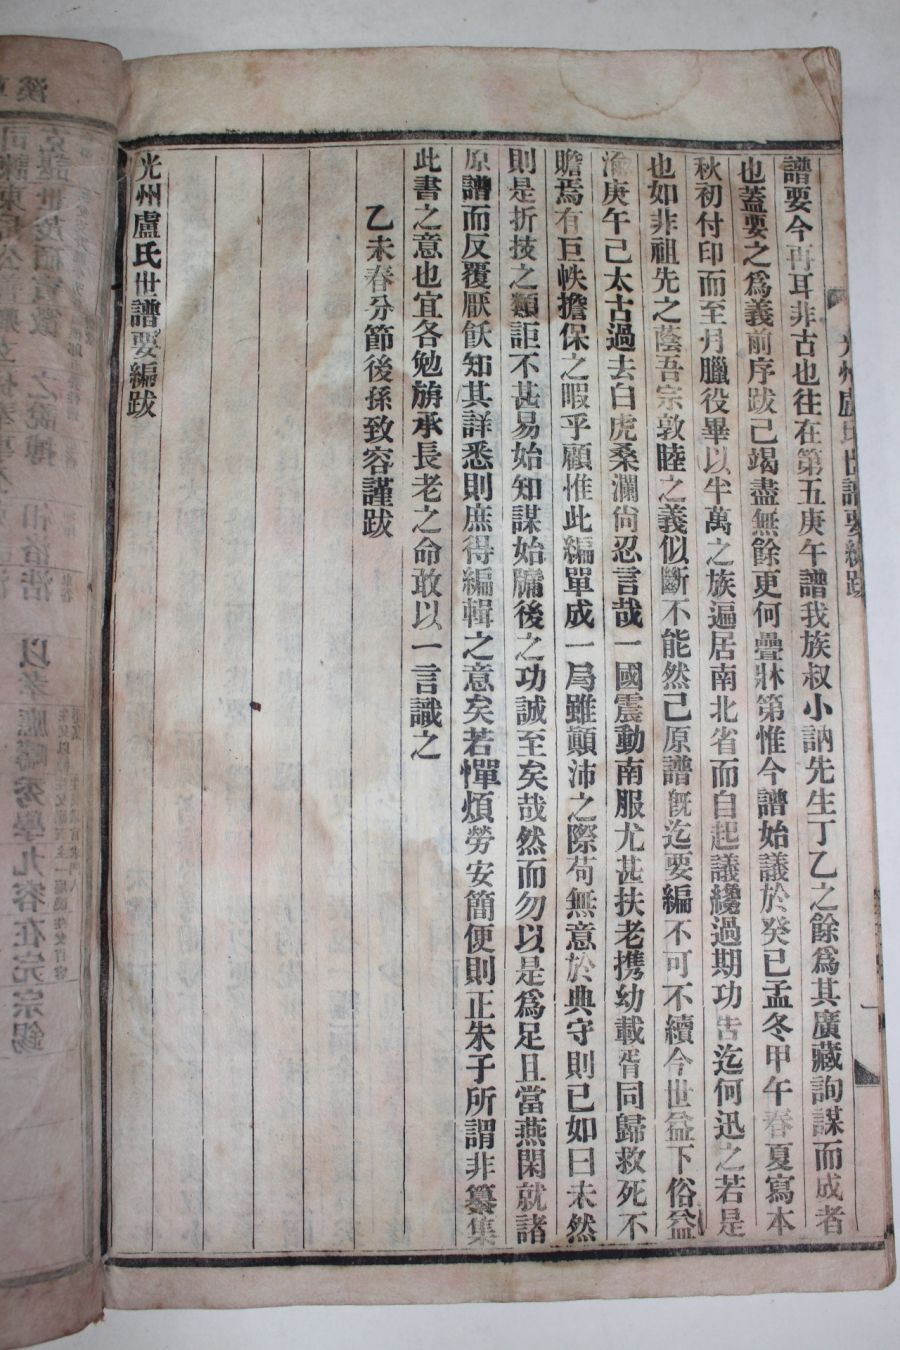 光州盧氏世譜要編跋
譜要今再耳非古也往在第五庚午譜我族叔小訥先生丁乙之餘爲其廣藏詢謀而成者
也蓋要之爲義前序跋已竭盡無餘更何疊牀第惟今譜始議於癸巳孟冬甲午春夏寫本
秋初付印而至月臘役畢以半萬之族遍居南北省而自起議纔過期功告迄何迅之若是
也如非祖先之蔭吾宗敦睦之義似斷不能然已原譜旣迄要編不可不續今世益下俗益
渝庚午已太古過去白虎桑瀾尙忍言哉一國震動南服尤甚扶老携幼載胥同歸救死不
贍焉有巨帙擔保之暇乎顧惟此編單成一局雖顚沛之際苟無意於典守則已如曰未然
則是折技之類詎不甚易始知謀始牖後之功誠至矣哉然而勿以是爲足且當燕閑就諸
原譜而反覆厭飫知其詳悉則庶得編輯之意矣若憚煩勞安簡便則正朱子所謂非纂集
此書之意也宜各勉旃承長老之命敢以一言識之
乙未春分節後孫致容謹跋
光州盧氏世譜要編跋